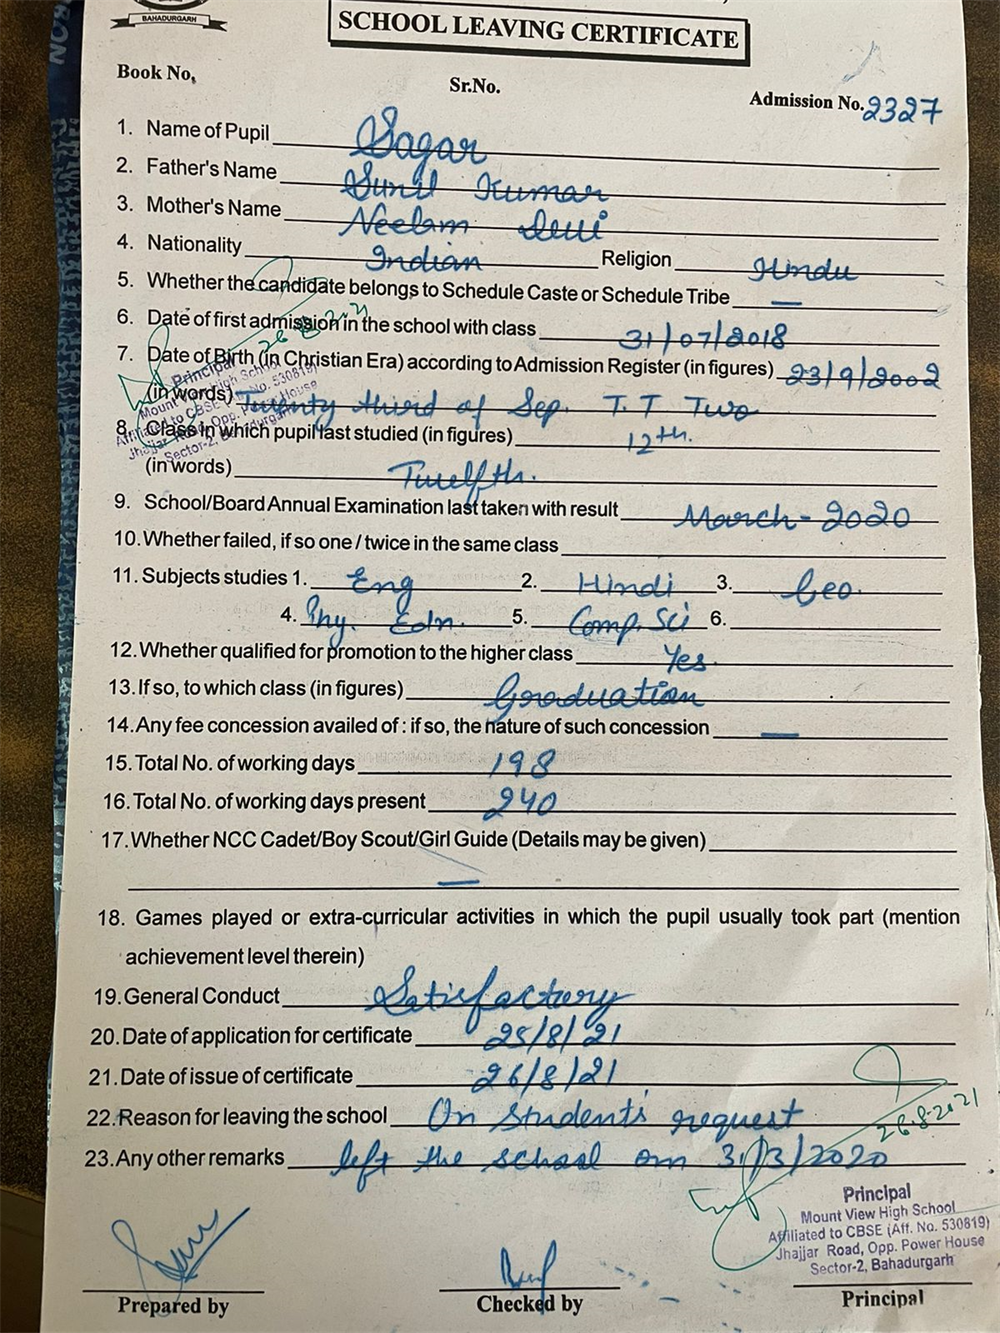 BAHADURGARH
SCHOOL LEAVING CERTIFICATE
Book No.
Sr.No.
Admission No. 2327
1. Name of Pupil Sagar
2. Father's Name Sunil Kumar
3. Mother's Name Neelam Devi
4. Nationality Indian Religion Hindu
5. Whether the candidate belongs to Schedule Caste or Schedule Tribe —
6. Date of first admission in the school with class 31/07/2018
26.8.2021
7. Date of Birth (in Christian Era) according to Admission Register (in figures) 23/9/2002
(in words) Twenty third of Sep. T.T Two
Principal
Mount View High School
Affiliated to CBSE (Aff. No. 530819)
Jhajjar Road, Opp. Power House
Sector-2, Bahadurgarh
8. Class in which pupil last studied (in figures) 12th.
(in words) Twelfth.
9. School/Board Annual Examination last taken with result March-2020
10. Whether failed, if so one / twice in the same class
11. Subjects studies 1. Eng 2. Hindi 3. Geo.
4. Phy. Edn. 5. Comp. Sci 6.
12. Whether qualified for promotion to the higher class Yes.
13. If so, to which class (in figures) Graduation
14. Any fee concession availed of : if so, the nature of such concession —
15. Total No. of working days 198
16. Total No. of working days present 240
17. Whether NCC Cadet/Boy Scout/Girl Guide (Details may be given)
—
18. Games played or extra-curricular activities in which the pupil usually took part (mention
achievement level therein)
19. General Conduct Satisfactory
20. Date of application for certificate 25/8/21
21. Date of issue of certificate 26/8/21
22. Reason for leaving the school On Student's request
26.8.2021
23. Any other remarks left the school om 31/3/2020
Principal
Mount View High School
Affiliated to CBSE (Aff. No. 530819)
Jhajjar Road, Opp. Power House
Sector-2, Bahadurgarh
Prepared by
Checked by
Principal